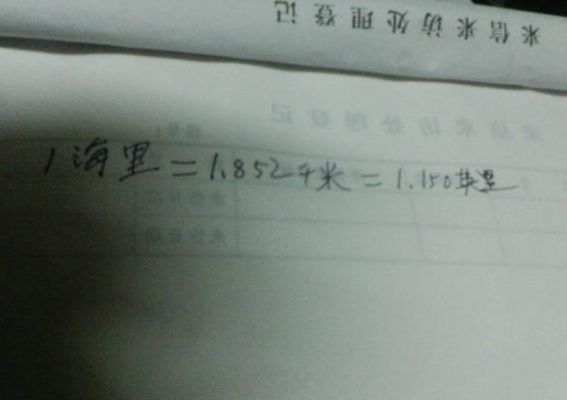 来信来访处理登记
来信来访处理登记
1海里=1.852千米=1.150英里